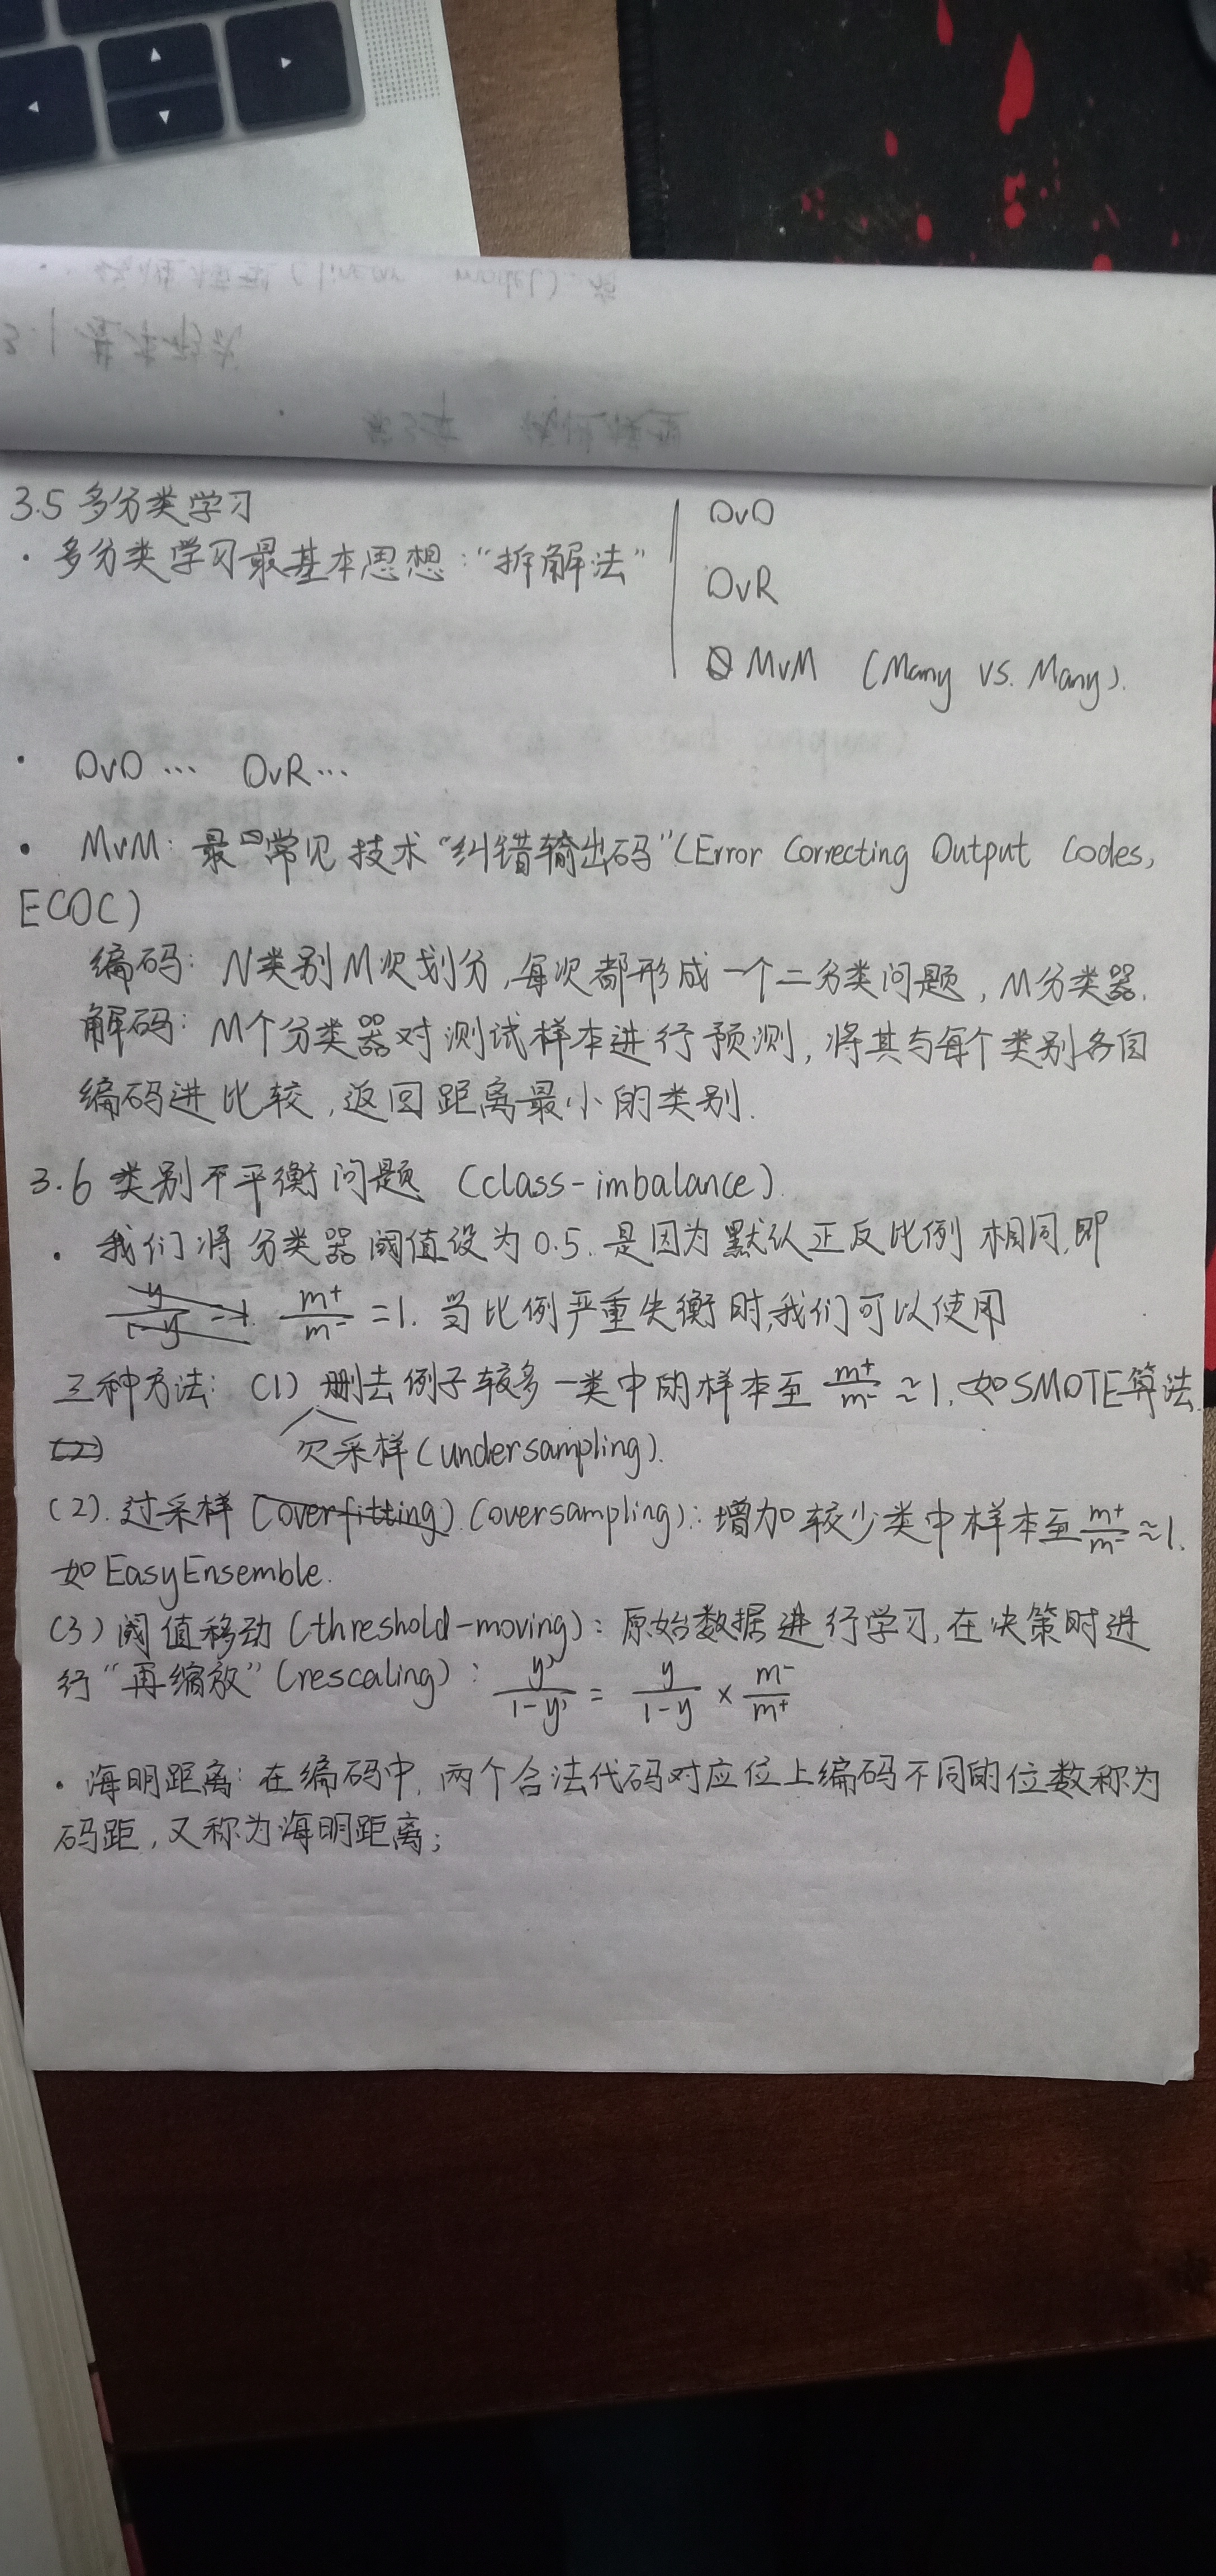 3.5 多分类学习
· 多分类学习最基本思想：“拆解法”
OvO
OvR
MvM (Many vs. Many).
· OvO … OvR …
· MvM: 最常见技术“纠错输出码”(Error Correcting Output Codes,
ECOC)
编码: N类别M次划分,每次都形成一个二分类问题, M分类器.
解码: M个分类器对测试样本进行预测, 将其与每个类别各自
编码进比较,返回距离最小的类别.
3.6 类别不平衡问题 (class-imbalance).
· 我们将分类器阈值设为0.5.是因为默认正反比例相同,即
y/(1-y) = 1. m+/m- = 1. 当比例严重失衡时,我们可以使用
三种方法: (1) 删去例子较多一类中的样本至 m+/m- ≈1. 如SMOTE算法.
(2) 欠采样(undersampling).
(2). 过采样 (overfitting) (oversampling): 增加较少类中样本至 m+/m- ≈1.
如EasyEnsemble.
(3) 阈值移动 (threshold-moving): 原始数据进行学习,在决策时进
行“再缩放”(rescaling): y'/(1-y') = y/(1-y) × m-/m+
· 海明距离: 在编码中, 两个合法代码对应位上编码不同的位数称为
码距, 又称为海明距离;